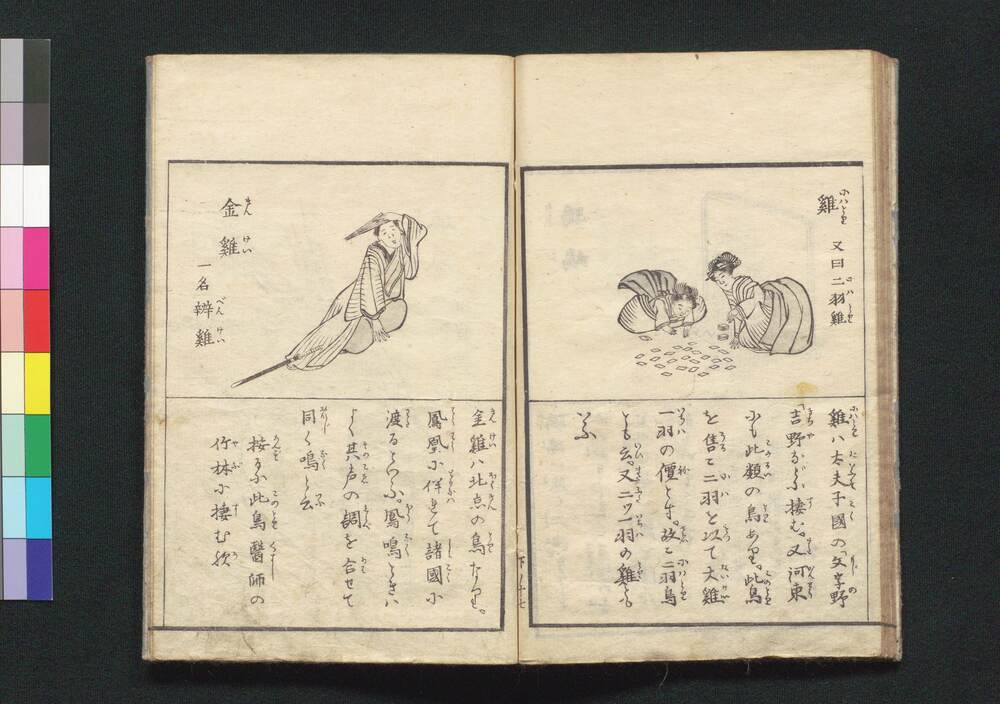 雞
又曰二羽雞
雞ハ太夫子國の文字野
吉野などに棲む。又河東
にも此類の鳥あり。此鳥
を售に二羽を以て大雞
一羽の價とす。故に二羽鳥
とも云。又二ツ一羽の雞とも
いふ
金雞
一名辨雞
金雞ハ北点の鳥なり。
鳳凰に伴れて諸國に
渡るといふ。鳳鳴ときハ
よく其声の調を合せて
同く鳴と云
按るに此鳥醫師の
竹林に棲む
下ノ十七